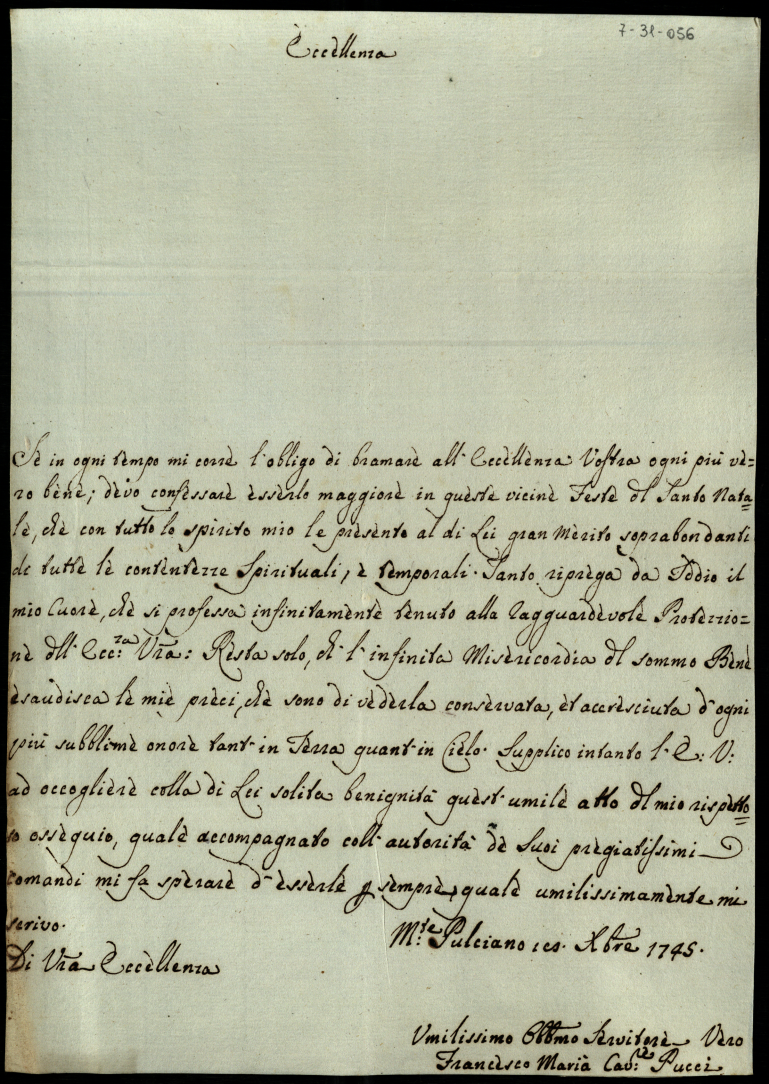 7-31-056
Eccellenza
Se in ogni tempo mi corre l'obligo di bramare all'Eccellenza Vostra ogni più ve=
ro bene; devo confessare esserlo maggiore in queste vicine Feste del Santo Nata=
le, che con tutto lo spirito mio le presento al di Lei gran Merito soprabondanti
de tutte le contentezze Spirituali, e temporali. Tanto riprega da Iddio il
mio Cuore, che si professa infinitamente tenuto alla ragguardevole Protezzio=
ne dell'Ecc:za Vra: Resta solo, ch'l'infinita Misericordia del sommo Bene
esaudisca le mie preci, che sono di vederla conservata, et accresciuta d'ogni
più subblime onore tant'in Terra quant'in Cielo. Supplico intanto l'E: V:
ad accogliere colla di Lei solita benignità quest'umile atto del mio rispetto=
so ossequio, quale accompagnato coll'autorità de Suoi pregiatissimi
comandi mi fa sperare d'esserle sempre, quale umilissimamente mi
scrivo.
M:te Pulciano Xbre 1745.
Di Vra Eccellenza
Umilissimo Obbmo Servitore Vero
Francesco Maria Cav:re Pucci